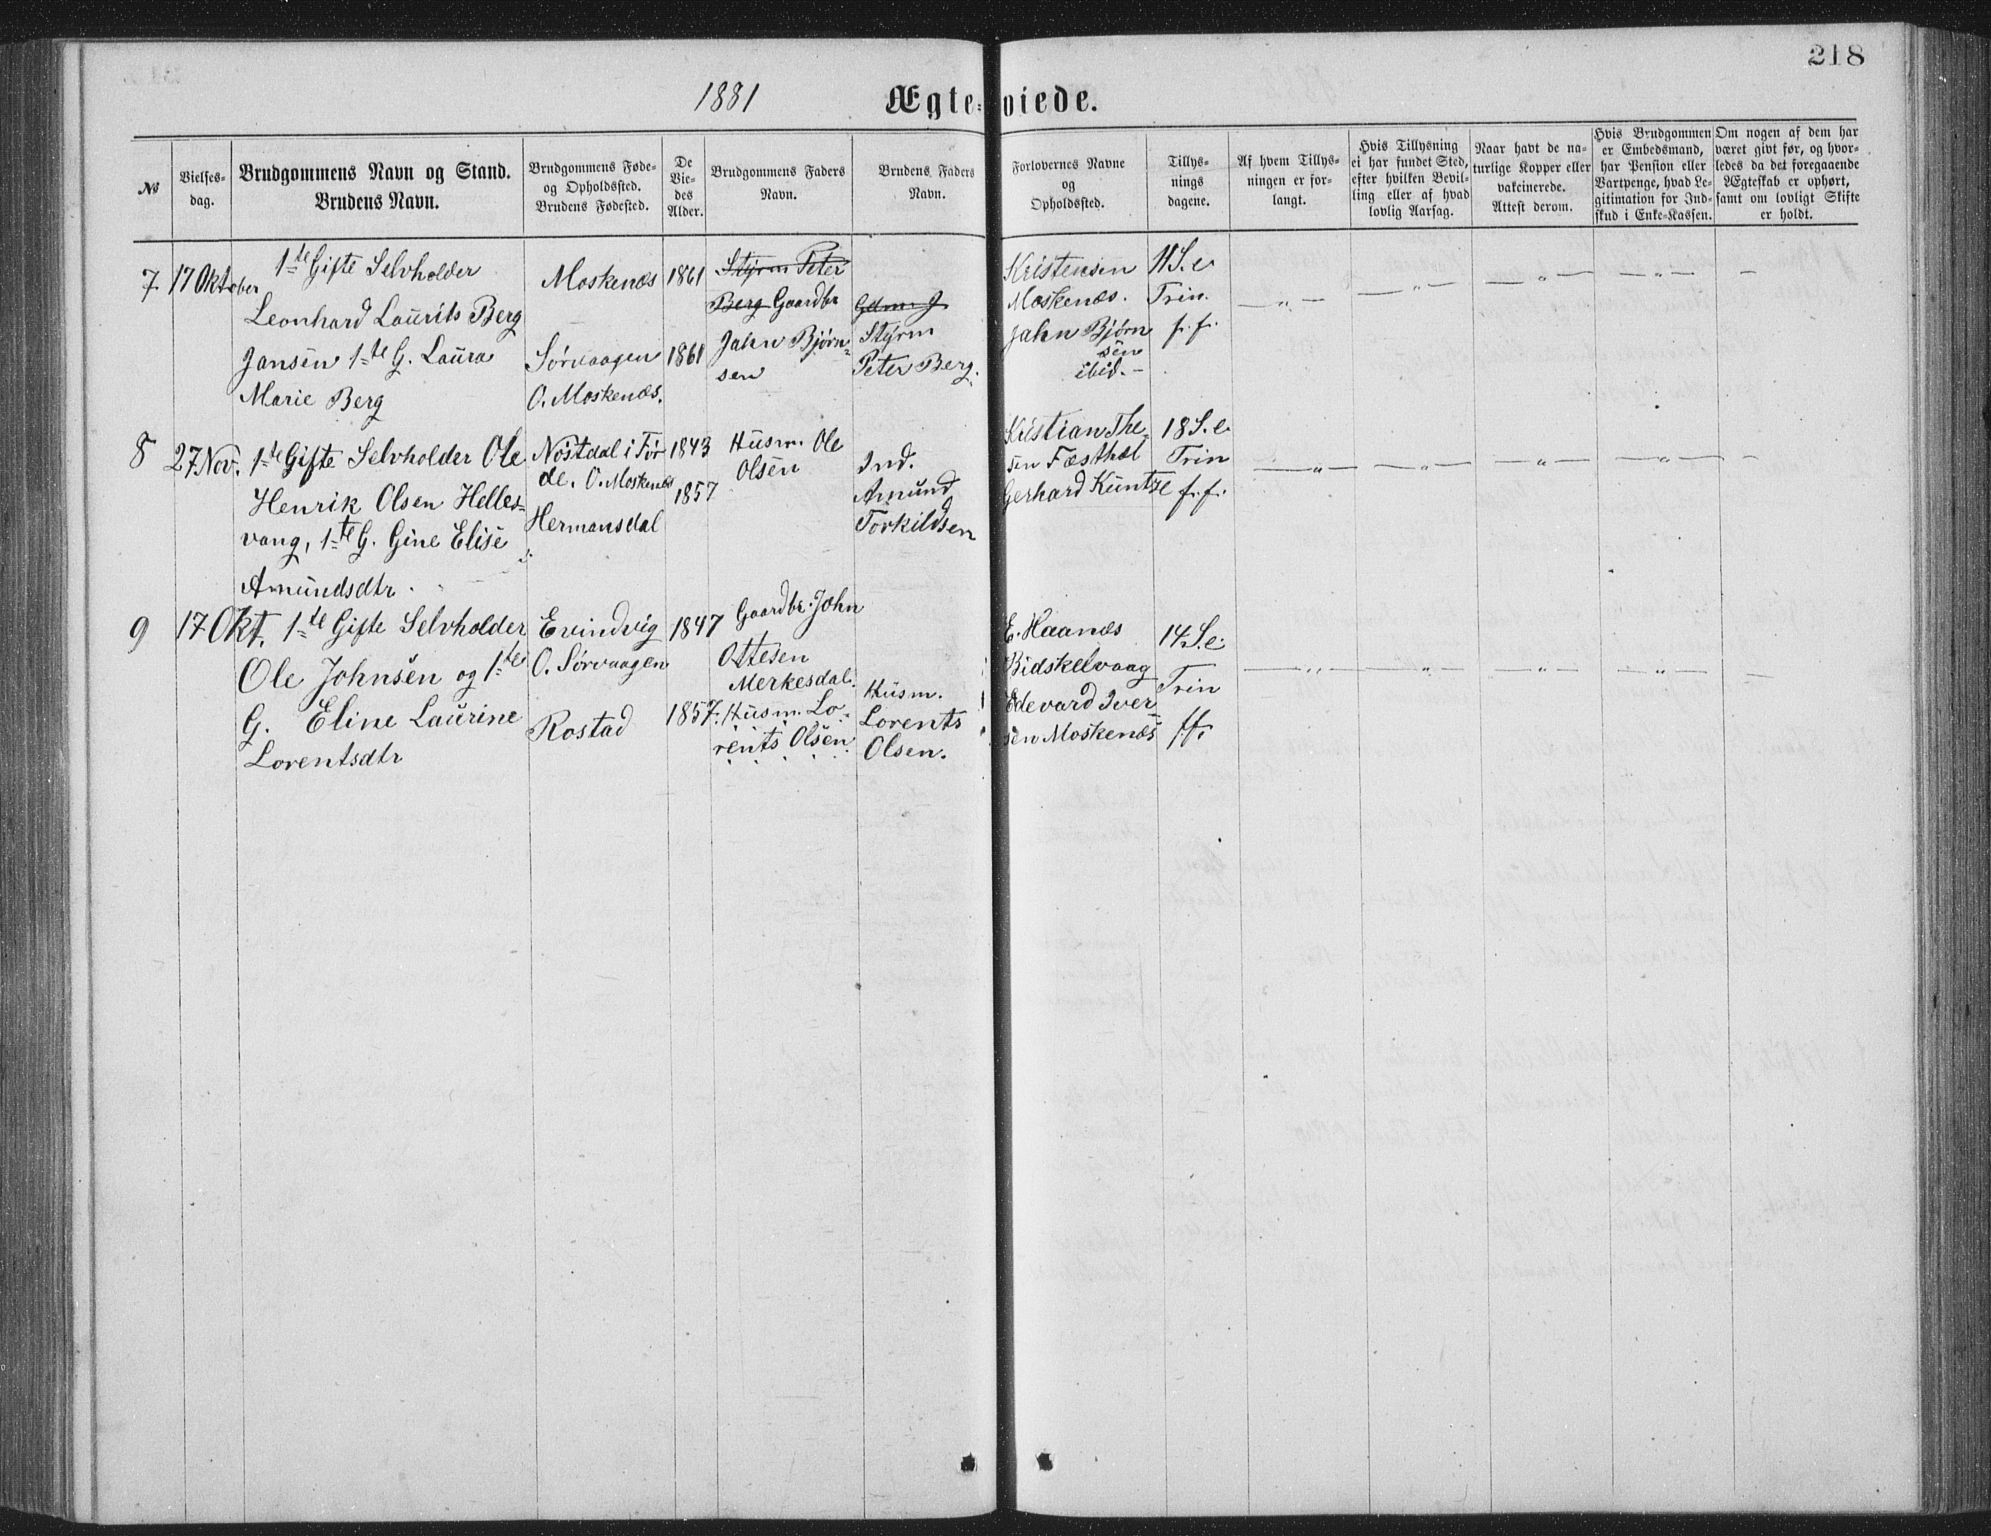 218
1881
Ægteviede.
№
Vielses-
dag.
Brudgommens Navn og Stand.
Brudens Navn.
Brudgommens Føde-
og Opholdssted.
Brudens Fødested.
De
Vie-
des
Alder.
Brudgommens Faders
Navn.
Brudens Faders
Navn.
Forlovernes Navne
og
Opholdssted.
Tillys-
nings
dagene.
Af hvem Tillys-
ningen er for-
langt.
Hvis Tillysning
ei har fundet Sted,
efter hvilken Bevil-
ling eller af hvad
lovlig Aarsag.
Naar havt de na-
turlige Kopper eller
vakcinerede.
Attest derom.
Hvis Brudgommen
er Embedsmand,
har Pension eller
Vartpenge, hvad Le-
gitimation for Ind-
skud i Enke-Kassen.
Om nogen af dem har
været givt før, og hvor-
ledes da det foregaaende
Ægteskab er ophørt,
samt om lovligt Skifte
er holdt.
7 17 Oktober
1ste Gifte Selvholder
Leonhard Laurits Berg
Jansen 1ste G. Laura
Marie Berg
Moskenæs
Sørvaagen
O. Moskenæs.
1861
1861
Styrm Peter
Berg Gaardbr
Jahn Bjørn-
sen
Gdmr J
Styrm
Peter Berg.
Kristensen
Moskenæs.
Jahn Bjørn
sen
ibid. -
11 S. e.
Trin.
f. f.
— " —
— " —
— " —
— " —
—
8 27 Nov.
1ste Gifte Selvholder Ole
Henrik Olsen Helles-
vang, 1ste G. Gine Elise
Amundsdtr.
Nøstdal i Før-
de. O. Moskenæs
Hermansdal
1843
1857
Husm. Ole
Olsen
Ind.
Amund
Torkildsen
Kristian The-
sen Fæsthæl
Gerhard Kuntze
18 S. e.
Trin
f. f.
— " —
— " —
— " —
— " —
—
9 17 Okt.
1ste Gifte Selvholder
Ole Johnsen og 1ste
G. Eline Laurine
Lorentsdtr
Evindvig
O. Sørvaagen
Rostad
1847
1857.
Gaardbr. John
Ottesen
Merkesdal.
Husm. Lo-
rents Olsen.
Husm.
Lorents
Olsen.
E. Haanæs
Bidskelvaag
Edevard Iver-
sen Moskenæs
14 S. e.
Trin
ff.
— " —
— " —
— " —
— " —
—